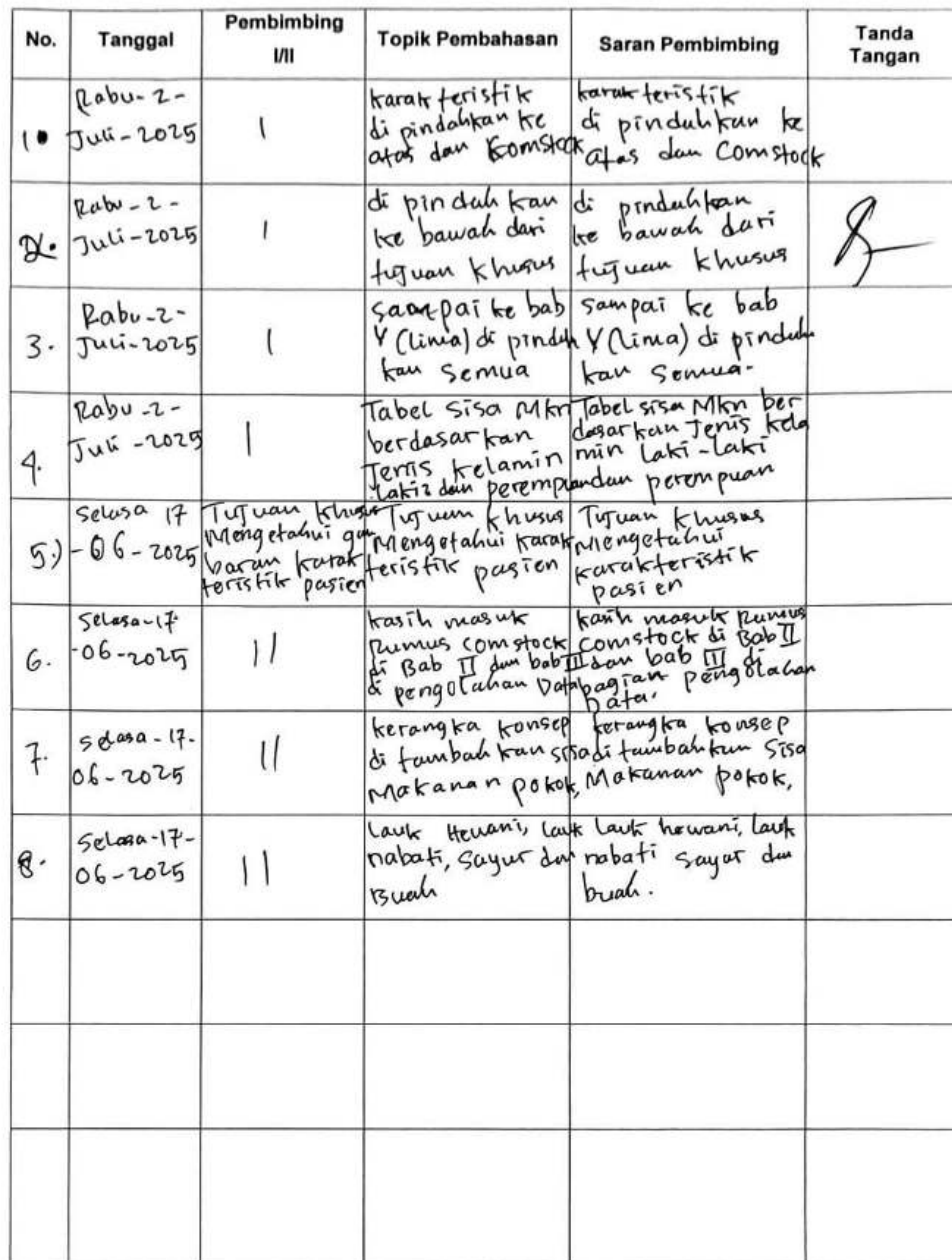 No. Tanggal Pembimbing I/II Topik Pembahasan Saran Pembimbing Tanda Tangan
1.
Rabu-2-
Juli-2025
I
karakteristik
di pindahkan ke
atas dan Komstock
karakteristik
di pinduhkan ke
atas dan Comstock
2.
Rabu-2-
Juli-2025
I
di pindah kan
ke bawah dari
tujuan khusus
di pinduhkan
ke bawah dari
tujuan khusus
3.
Rabu-2-
Juli-2025
I
sampai ke bab
V (lima) di pindah
kan semua
sampai ke bab
V (lima) di pindah
kan semua.
4.
Rabu-2-
Juli-2025
I
Tabel Sisa Mkn
berdasarkan
Jenis kelamin
laki2 dan perempuan
Tabel sisa Mkn ber
dasarkan Jenis kela
min laki-laki
dan perempuan
5.)
Selasa 17
-06-2025
Tujuan khusus
Mengetahui gam
baran karak
teristik pasien
Tujuan khusus
Mengetahui karak
teristik pasien
Tujuan khusus
Mengetahui
karakteristik
pasien
6.
Selasa-17-
-06-2025
II
kasih masuk
Rumus comstock
di Bab II dan bab III
di pengolahan Data
kasih masuk Rumus
comstock di Bab II
dan bab III di
bagian pengolahan
Data.
7.
Selasa-17-
06-2025
II
kerangka konsep
di tambah kan sisa
Makanan pokok,
kerangka konsep
di tambahkan sisa
Makanan pokok,
8.
Selasa-17-
06-2025
II
Lauk Hewani, lauk
nabati, Sayur dan
Buah
Lauk hewani, lauk
nabati sayur dan
buah.